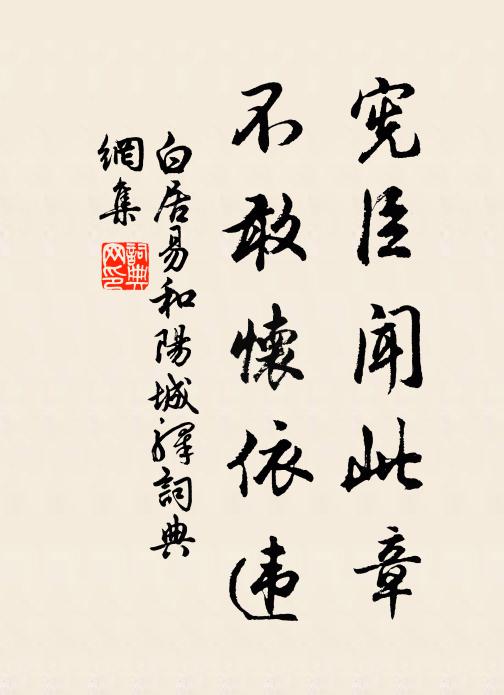 宪臣闻此章
不敢懷依违
白居易和陽城驛詞典
網集
詞典
网印